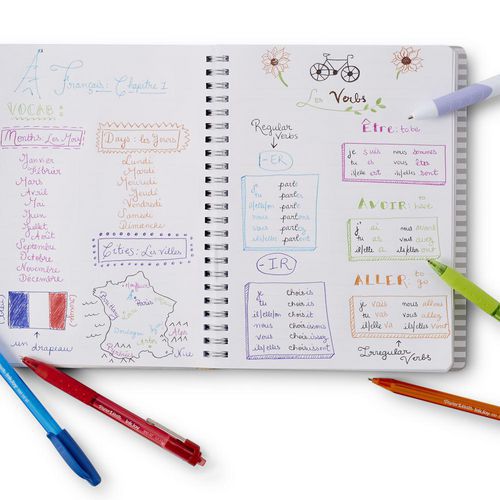 Français: Chapitre 1
VOCAB:
Months: Les Mois
Janvier
Février
Mars
Avril
Mai
Juin
Juillet
Août
Septembre
Octobre
Novembre
Décembre
un drapeau
Days: les Jours
Lundi
Mardi
Mercredi
Jeudi
Vendredi
Samedi
Dimanche
Cities: Les villes
Paris
Nice
Les Verbs
Regular
Verbs
-ER
je parle
tu parles
il/elle/on parle
nous parlons
vous parlez
ils/elles parlent
-IR
je choisis
tu choisis
il/elle/on choisit
nous choisissons
vous choisissez
ils/elles choisissent
Être: to be
je suis nous sommes
tu es vous êtes
il/elle est ils/elles sont
AVOIR: to have
j' ai nous avons
tu as vous avez
il/elle a ils/elles ont
ALLER: to go
je vais nous allons
tu vas vous allez
il/elle va ils/elles vont
Irregular
Verbs
Paper Mate InkJoy
Paper Mate InkJoy
Paper Mate InkJoy